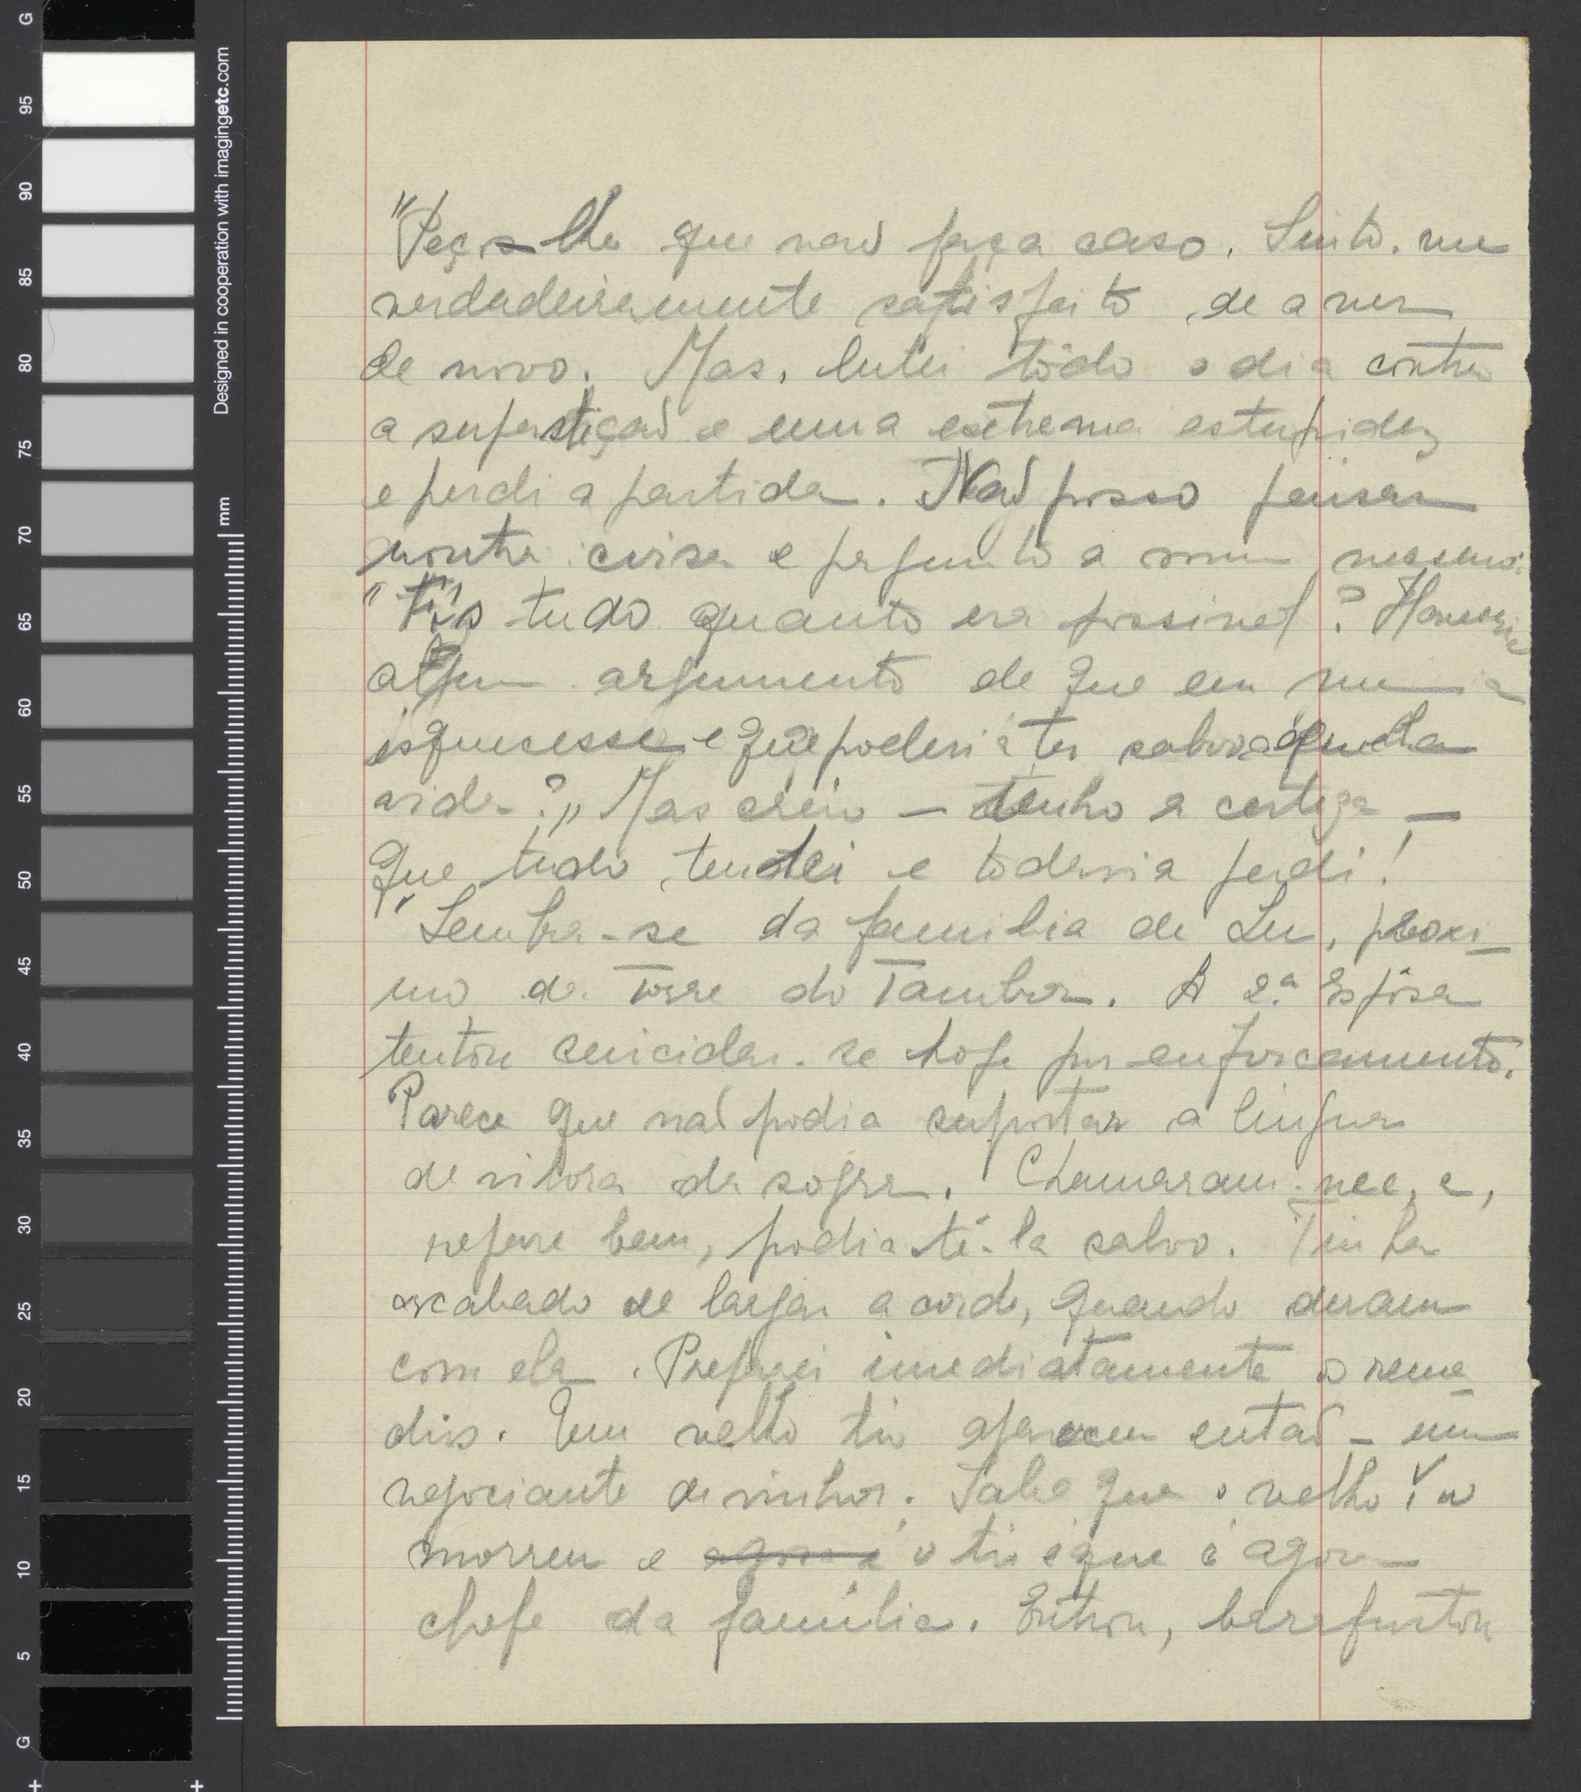 "Peço-lhe que não faça caso. Sinto-me
verdadeiramente satisfeito de a ver
de novo. Mas, lutei tôdo o dia contra
a superstição e uma extrema estupidez
e perdi a partida. Não posso pensar
noutra coisa e pergunto a mim mesmo:
"Fiz tudo quanto era possivel? Haveria
algum argumento de que eu me
esquecesse e que poderia ter salvo aquela
vida?" Mas creio — tenho a certeza —
que tudo tentei e todavia perdi!
"Lembra-se da familia de Lu, proxi-
mo da Torre do Tambor. A 2.ª Espôsa
tentou suicidar-se hoje por enforcamento.
Parece que não podia suportar a lingua
de vibora da sogra. Chamaram-me, e,
repare bem, podia tê-la salvo. Tinha
acabado de largar a corda, quando deram
com ela. Preparei imediatamente o reme-
dio. Um velho tio apareceu então - um
negociante de vinhos. Sabe que o velho Lu
morreu e agora é o tio é que é agora
chefe da família. Entrou, barafustou